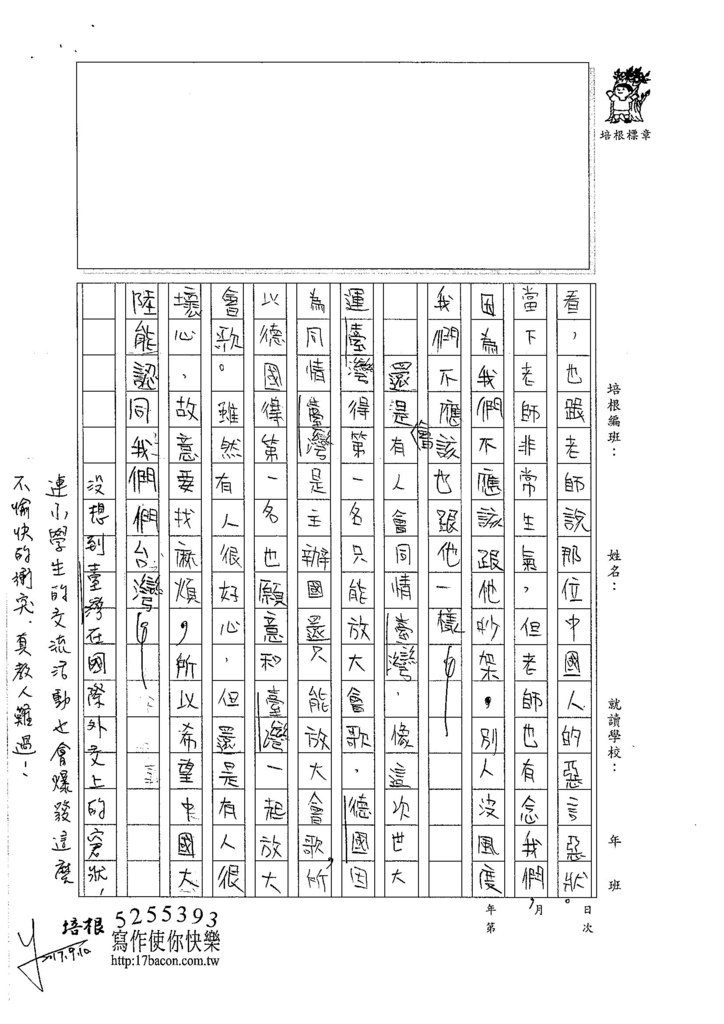 培根標章
培根編班：　姓名：　就讀學校：　年　班
年　月　日
第　次
看，也跟老師說那位中國人的惡言惡狀。
當下老師非常生氣，但老師也有念我們，
因為我們不應該跟他吵架，別人沒風度
我們不應該也跟他一樣
還是有人會同情臺灣，像這次世大
會
運臺灣得第一名只能放大會歌，德國因
為同情臺灣是主辦國還只能放大會歌，所
以德國得第一名也願意和臺灣一起放大
會歌。雖然有人很好心，但還是有人很
壞心，故意要找麻煩，所以希望中國大
陸能認同我們們台灣
沒想到臺灣在國際外交上的窘狀，
連小學生的交流活動也會爆發這麼
不愉快的衝突，真教人難過！
2017.9.10
培根 5255393
寫作使你快樂
http:17bacon.com.tw